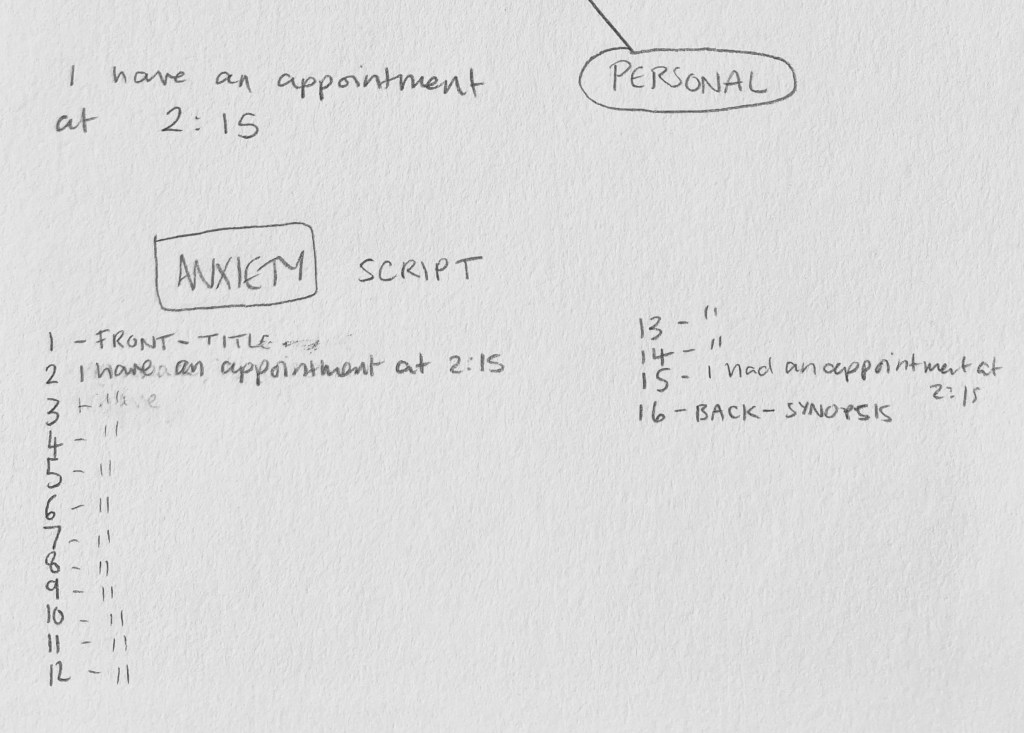 I have an appointment
at 2:15
PERSONAL
ANXIETY SCRIPT
1 - FRONT - TITLE
2 I have an appointment at 2:15
3 - "
4 - "
5 - "
6 - "
7 - "
8 - "
9 - "
10 - "
11 - "
12 - "
13 - "
14 - "
15 - I had an appointment at
2:15
16 - BACK - SYNOPSIS